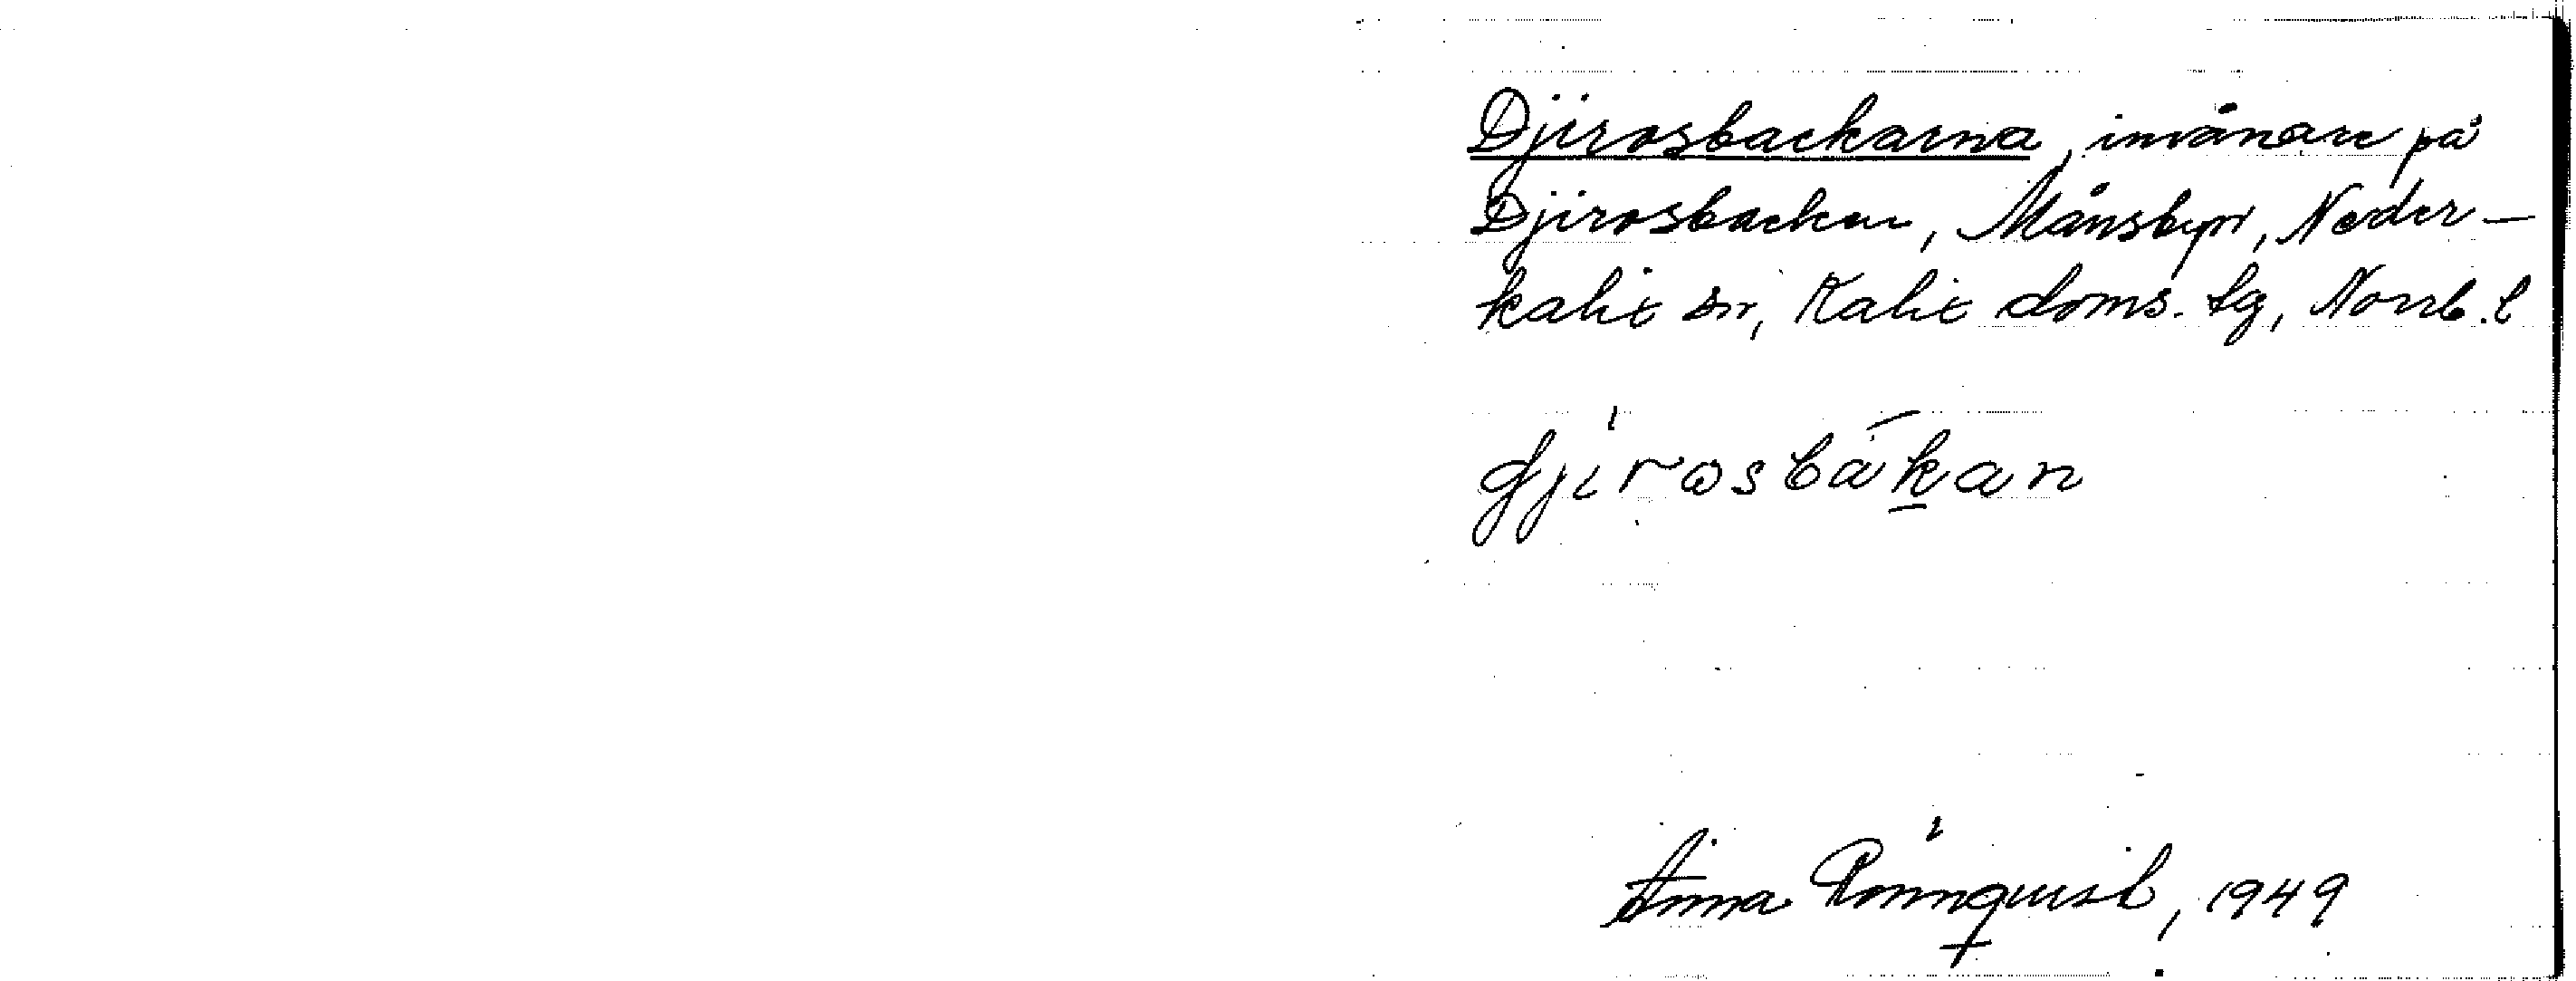 Djirosbackarna, invånare på
Djirosbacken, Månsbyn, Neder-
kalix sn, Kalix doms. tg, Norrb. l
djirosbakan
Anna Rönnquist, 1949